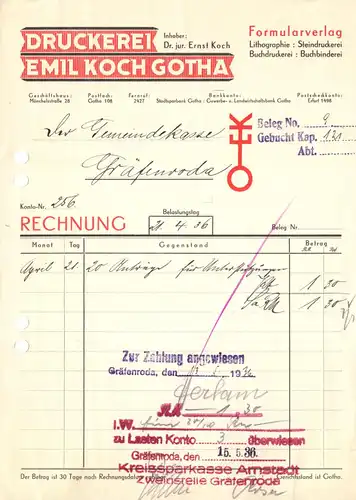 DRUCKEREI
EMIL KOCH GOTHA
Inhaber:
Dr. jur. Ernst Koch
Formularverlag
Lithographie : Steindruckerei
Buchdruckerei : Buchbinderei
Geschäftshaus: Postfach: Fernruf: Bankkonto: Postscheckkonto:
Münchelstraße 28 Gotha 108 2427 Städtsparbank Gotha : Gewerbe- u. Landwirtschaftsbank Gotha Erfurt 1998
Der Gemeindekasse
Gräfenroda
Beleg No. 9
Gebucht Kap. 131
Abt.
KEG
Konto-Nr. 256
RECHNUNG
Belastungstag
21.4.36
Beleg Nr.
Monat Tag Gegenstand Betrag
April 21. 20 Anträge für 1 30
1 30
Zur Zahlung angewiesen
Gräfenroda, den 1936
RM 1.30
I.W.
zu Lasten Konto 3 überwiesen
Gräfenroda, den 15. 5. 36.
Kreissparkasse Arnstadt
Zweigstelle Gräfenroda
Der Betrag ist 30 Tage nach Rechnungsdatum
Gerichtsstand ist Gotha.